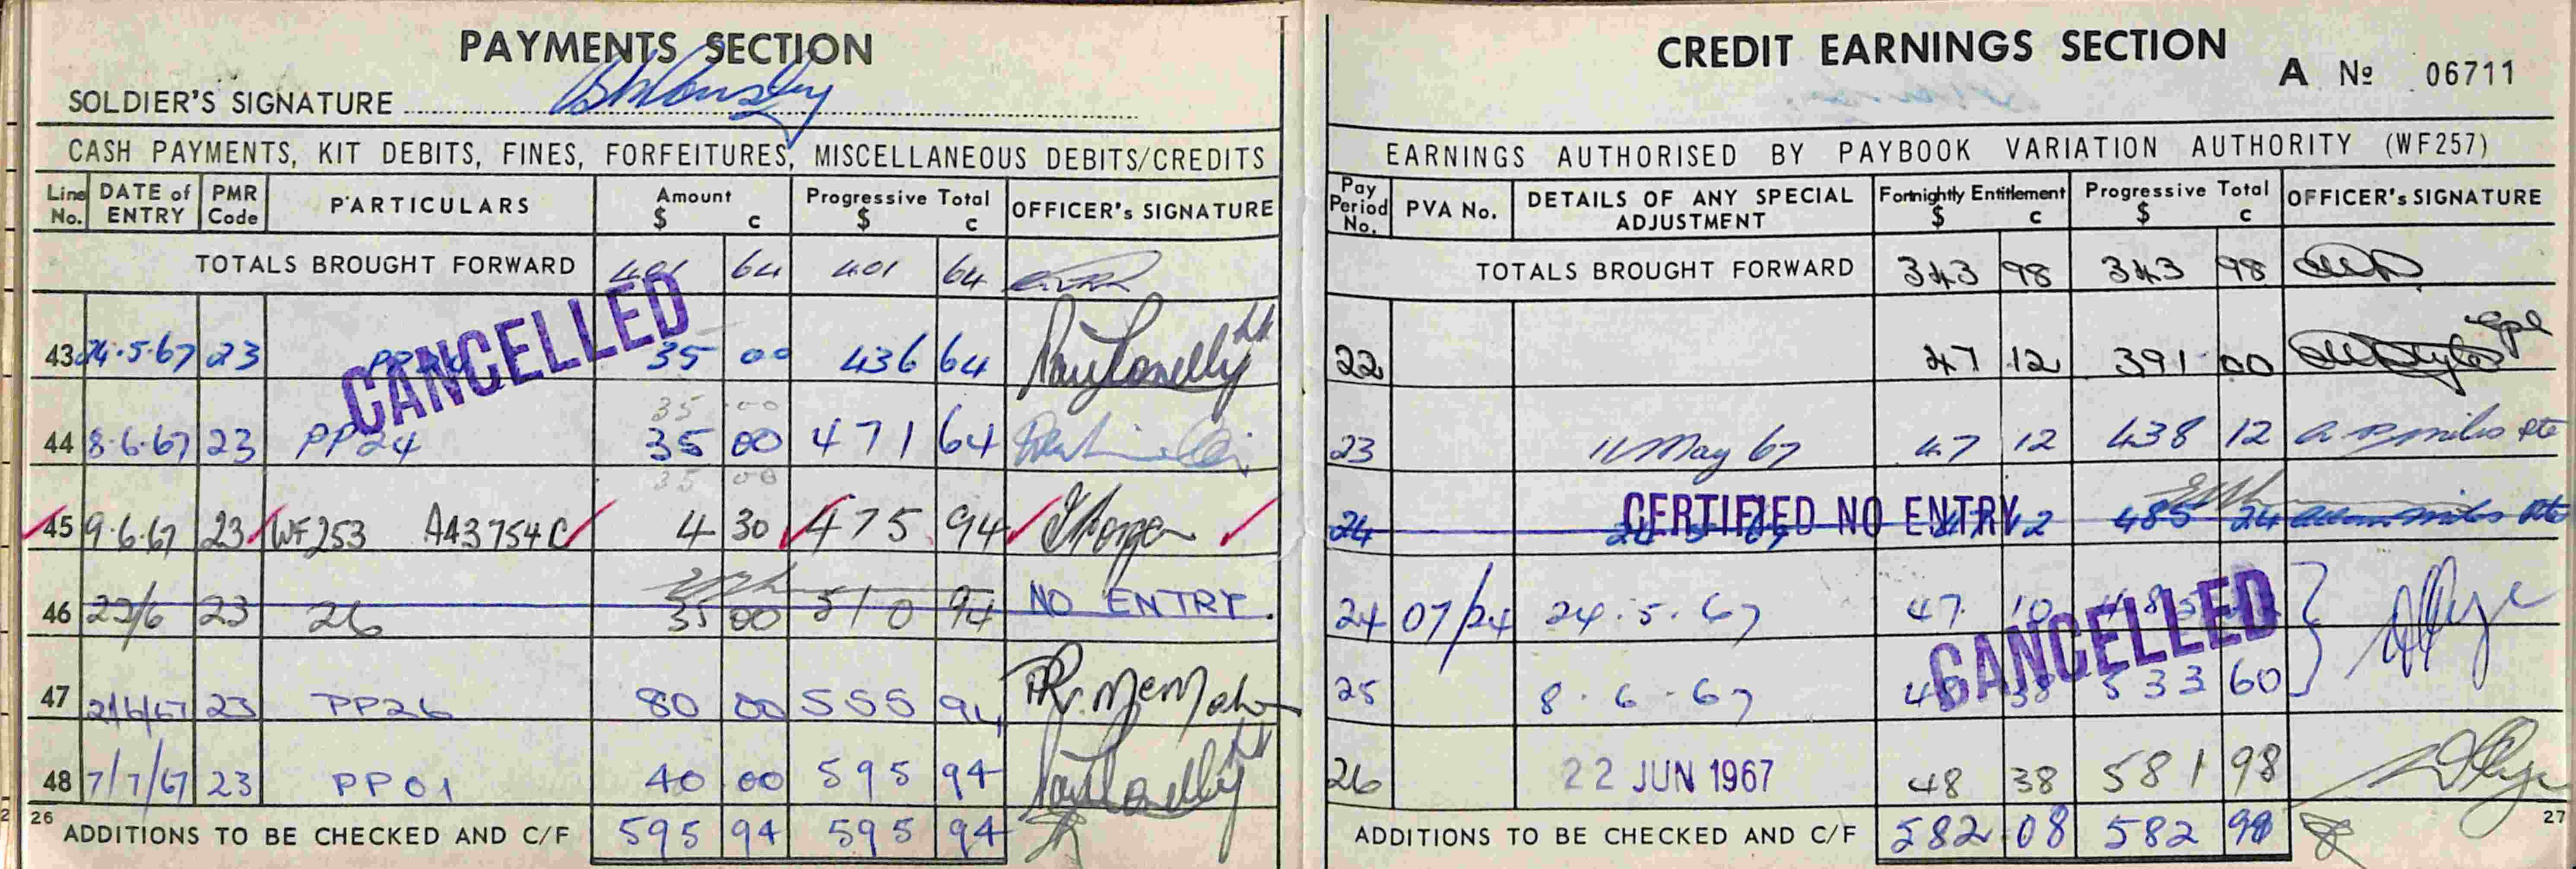 PAYMENTS SECTION
SOLDIER'S SIGNATURE
CASH PAYMENTS, KIT DEBITS, FINES, FORFEITURES, MISCELLANEOUS DEBITS/CREDITS
Line No. DATE of ENTRY PMR Code PARTICULARS Amount $ c Progressive Total $ c OFFICER's SIGNATURE
TOTALS BROUGHT FORWARD 401 64 401 64
43 24.5.67 23 35 00 436 64
CANCELLED
35 00
44 8.6.67 23 PP24 35 00 471 64
35 00
45 9.6.67 23 WF253 AA3754C 4 30 475 94
46 22/6 23 26 35 00 510 94 NO ENTRY.
47 21/6/67 23 PP26 80 00 555 94
48 7/7/67 23 PP01 40 00 595 94
26 ADDITIONS TO BE CHECKED AND C/F 595 94 595 94
CREDIT EARNINGS SECTION
A No 06711
EARNINGS AUTHORISED BY PAYBOOK VARIATION AUTHORITY (WF257)
Pay Period No. PVA No. DETAILS OF ANY SPECIAL ADJUSTMENT Fortnightly Entitlement $ c Progressive Total $ c OFFICER's SIGNATURE
TOTALS BROUGHT FORWARD 343 98 343 98
22 47 12 391 00 Cpl
23 11 May 67 47 12 438 12 Pte
24 CERTIFIED NO ENTRY 485 24 Pte
24 07/24 24.5.67 47
CANCELLED
25 8.6.67 38 533 60
26 22 JUN 1967 48 38 581 98
ADDITIONS TO BE CHECKED AND C/F 582 08 582 98
27